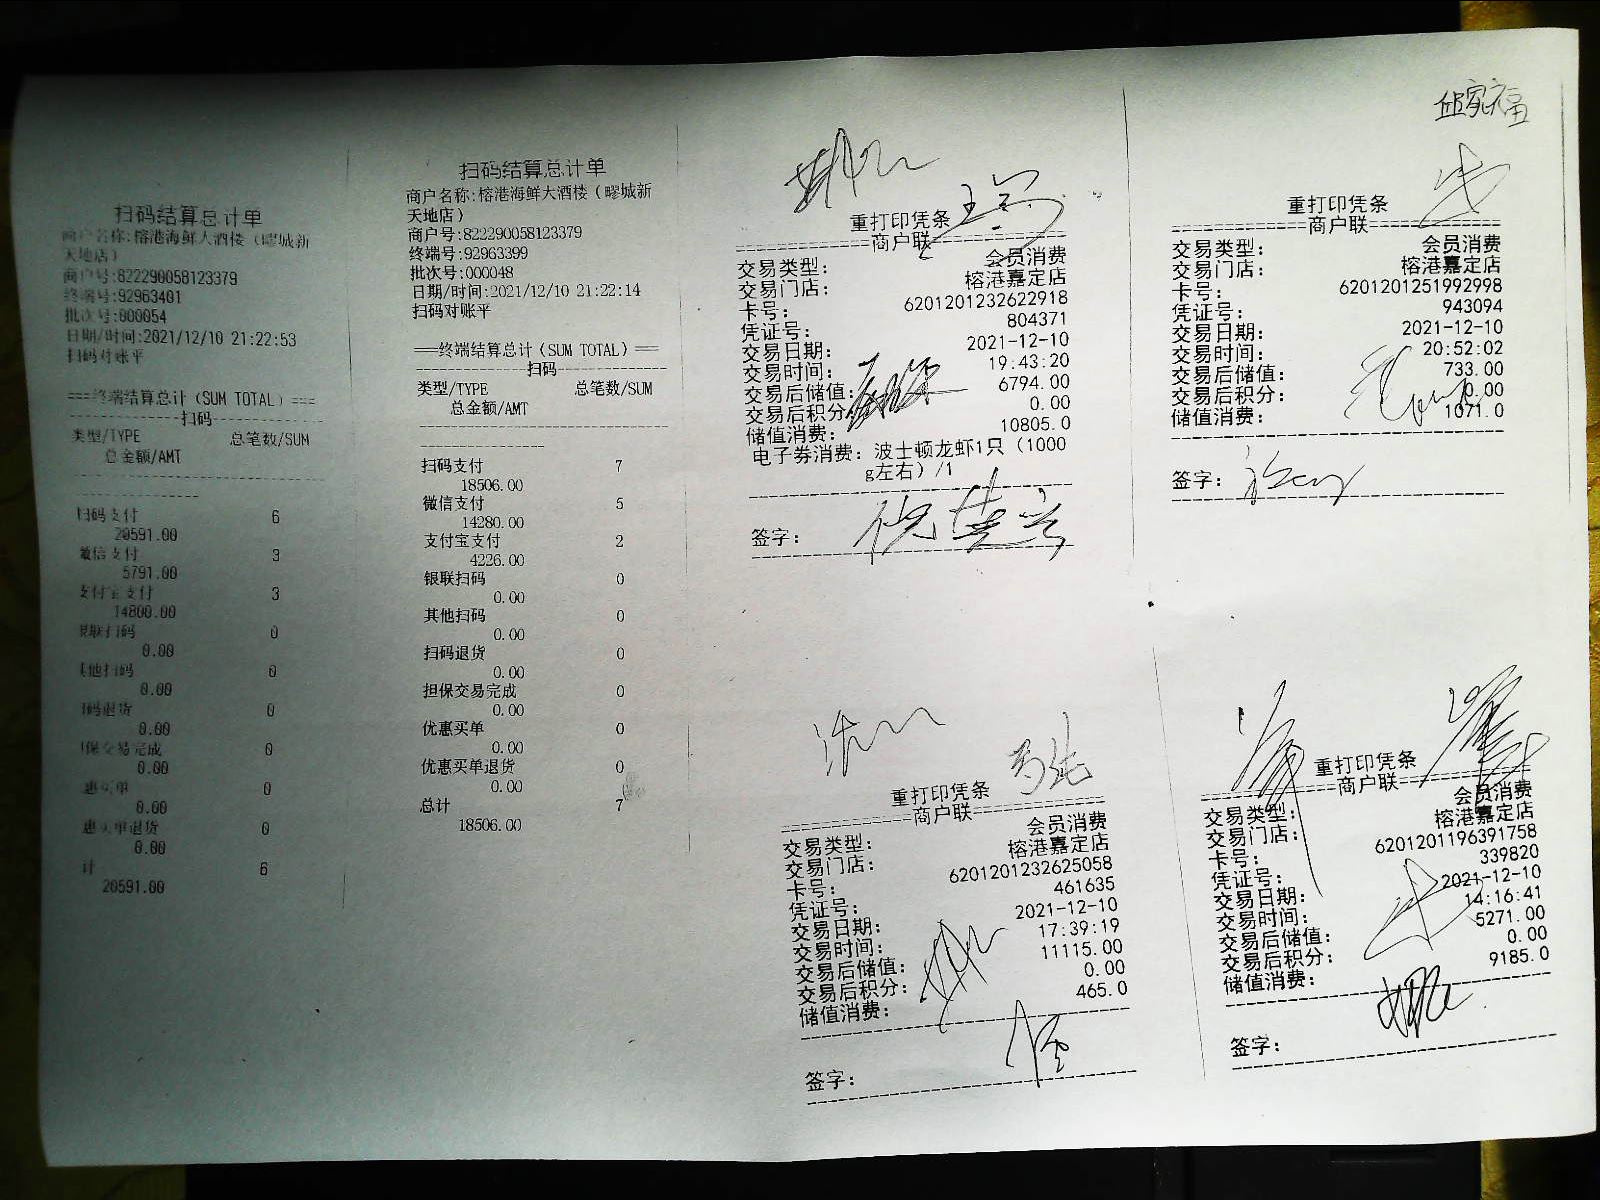 扫码结算总计单
商户名称:榕港海鲜大酒楼（疁城新
天地店）
商户号:822290058123379
终端号:92963401
批次号:000054
日期/时间:2021/12/10 21:22:53
扫码对账平
===终端结算总计（SUM TOTAL）===
扫码
类型/TYPE 总笔数/SUM
总金额/AMT
扫码支付 6
20591.00
微信支付 3
5791.00
支付宝支付 3
14800.00
银联扫码 0
0.00
其他扫码 0
0.00
扫码退货 0
0.00
担保交易完成 0
0.00
惠买单 0
0.00
惠买单退货 0
0.00
计 6
20591.00
扫码结算总计单
商户名称:榕港海鲜大酒楼（疁城新
天地店）
商户号:822290058123379
终端号:92963399
批次号:000048
日期/时间:2021/12/10 21:22:14
扫码对账平
===终端结算总计（SUM TOTAL）===
扫码
类型/TYPE 总笔数/SUM
总金额/AMT
扫码支付 7
18506.00
微信支付 5
14280.00
支付宝支付 2
4226.00
银联扫码 0
0.00
其他扫码 0
0.00
扫码退货 0
0.00
担保交易完成 0
0.00
优惠买单 0
0.00
优惠买单退货 0
0.00
总计 7
18506.00
重打印凭条
商户联
交易类型: 会员消费
交易门店: 榕港嘉定店
卡号: 6201201232622918
凭证号: 804371
交易日期: 2021-12-10
交易时间: 19:43:20
交易后储值: 6794.00
交易后积分 0.00
储值消费: 10805.0
电子券消费: 波士顿龙虾1只（1000
g左右）/1
签字:
重打印凭条
商户联
交易类型: 会员消费
交易门店: 榕港嘉定店
卡号: 6201201251992998
凭证号: 943094
交易日期: 2021-12-10
交易时间: 20:52:02
交易后储值: 733.00
交易后积分: 0.00
储值消费: 1071.0
签字:
重打印凭条
商户联
交易类型: 会员消费
交易门店: 榕港嘉定店
卡号: 6201201232625058
凭证号: 461635
交易日期: 2021-12-10
交易时间: 17:39:19
交易后储值: 11115.00
交易后积分: 0.00
储值消费: 465.0
签字:
重打印凭条
商户联
交易类型: 会员消费
交易门店: 榕港嘉定店
卡号: 6201201196391758
凭证号: 339820
交易日期: 2021-12-10
交易时间: 14:16:41
交易后储值: 5271.00
交易后积分: 0.00
储值消费: 9185.0
签字: